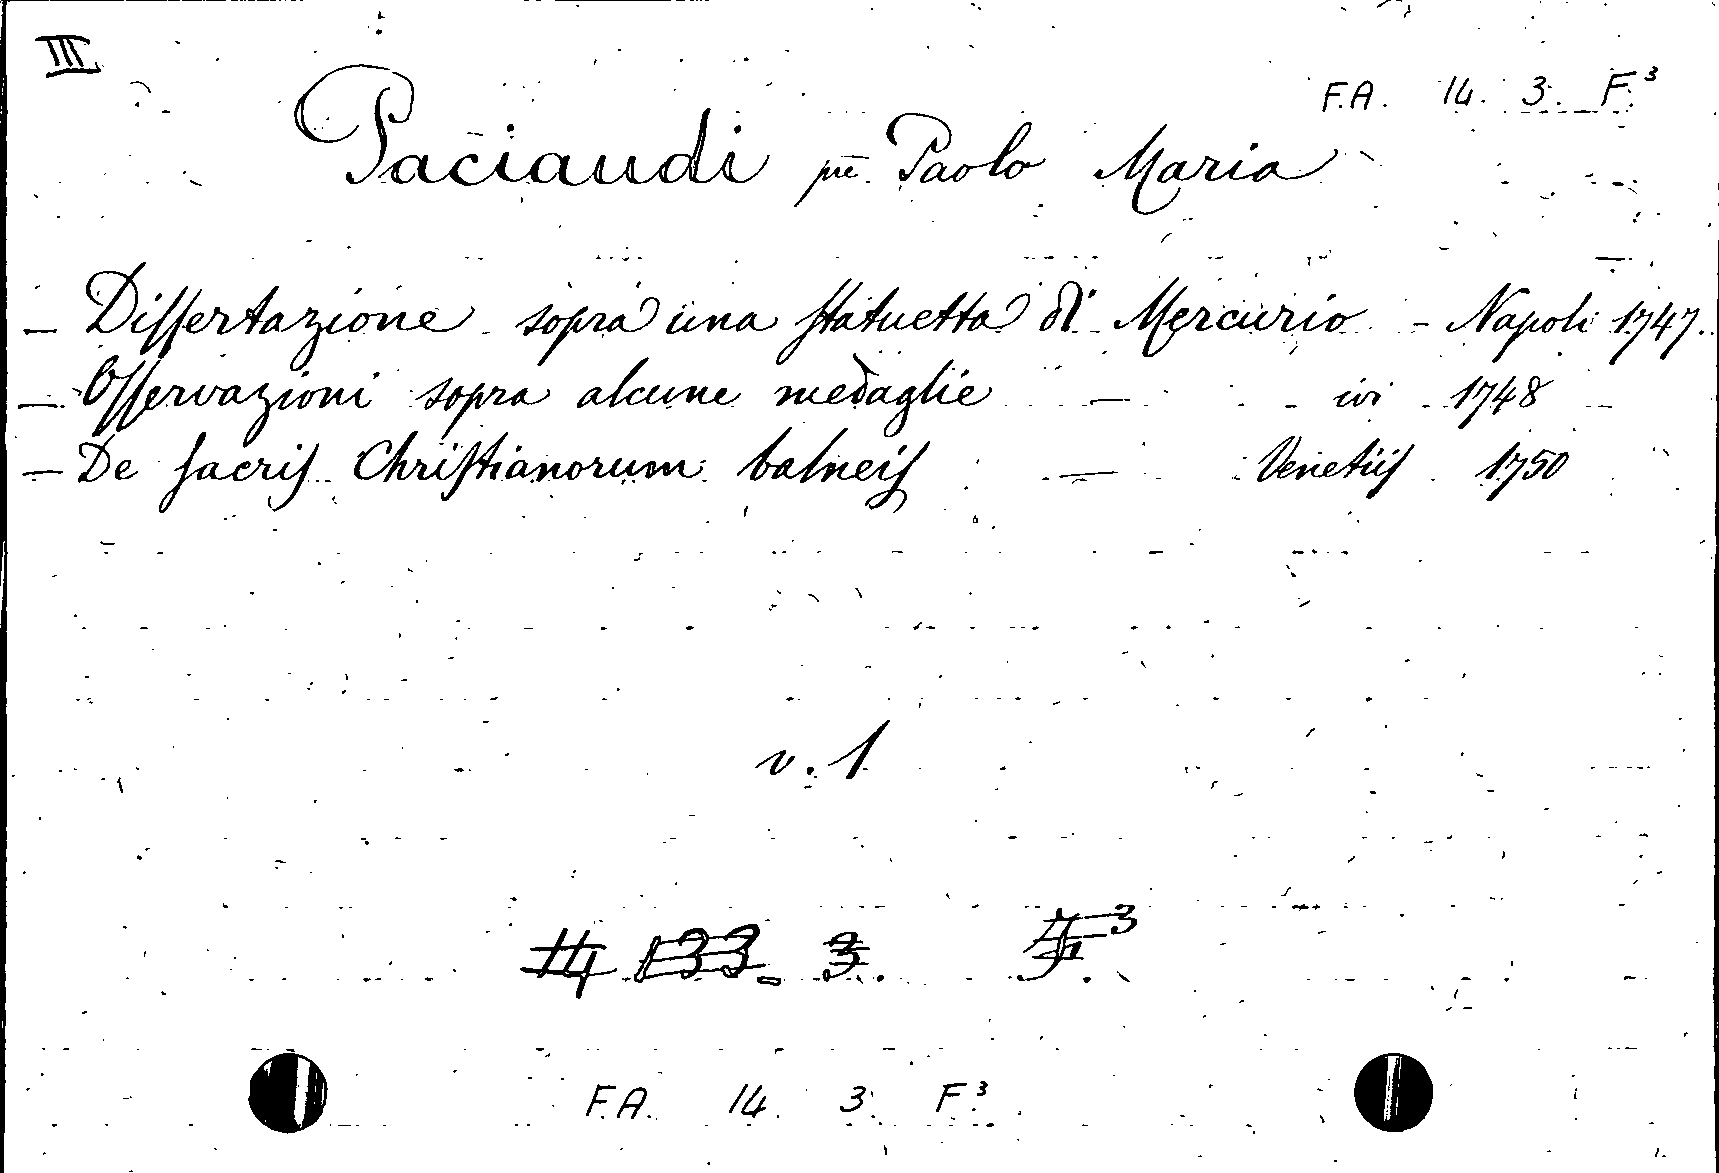 III
F.A. 14. 3. F.³
Paciaudi Paolo Maria
— Dissertazione sopra una statuetta di Mercurio - Napoli 1747.
— Osservazioni sopra alcune medaglie — ivi 1748
— De sacris Christianorum balneis — Venetiis 1750
v. 1
14 133. 3. F.³
F.A. 14. 3. F.³